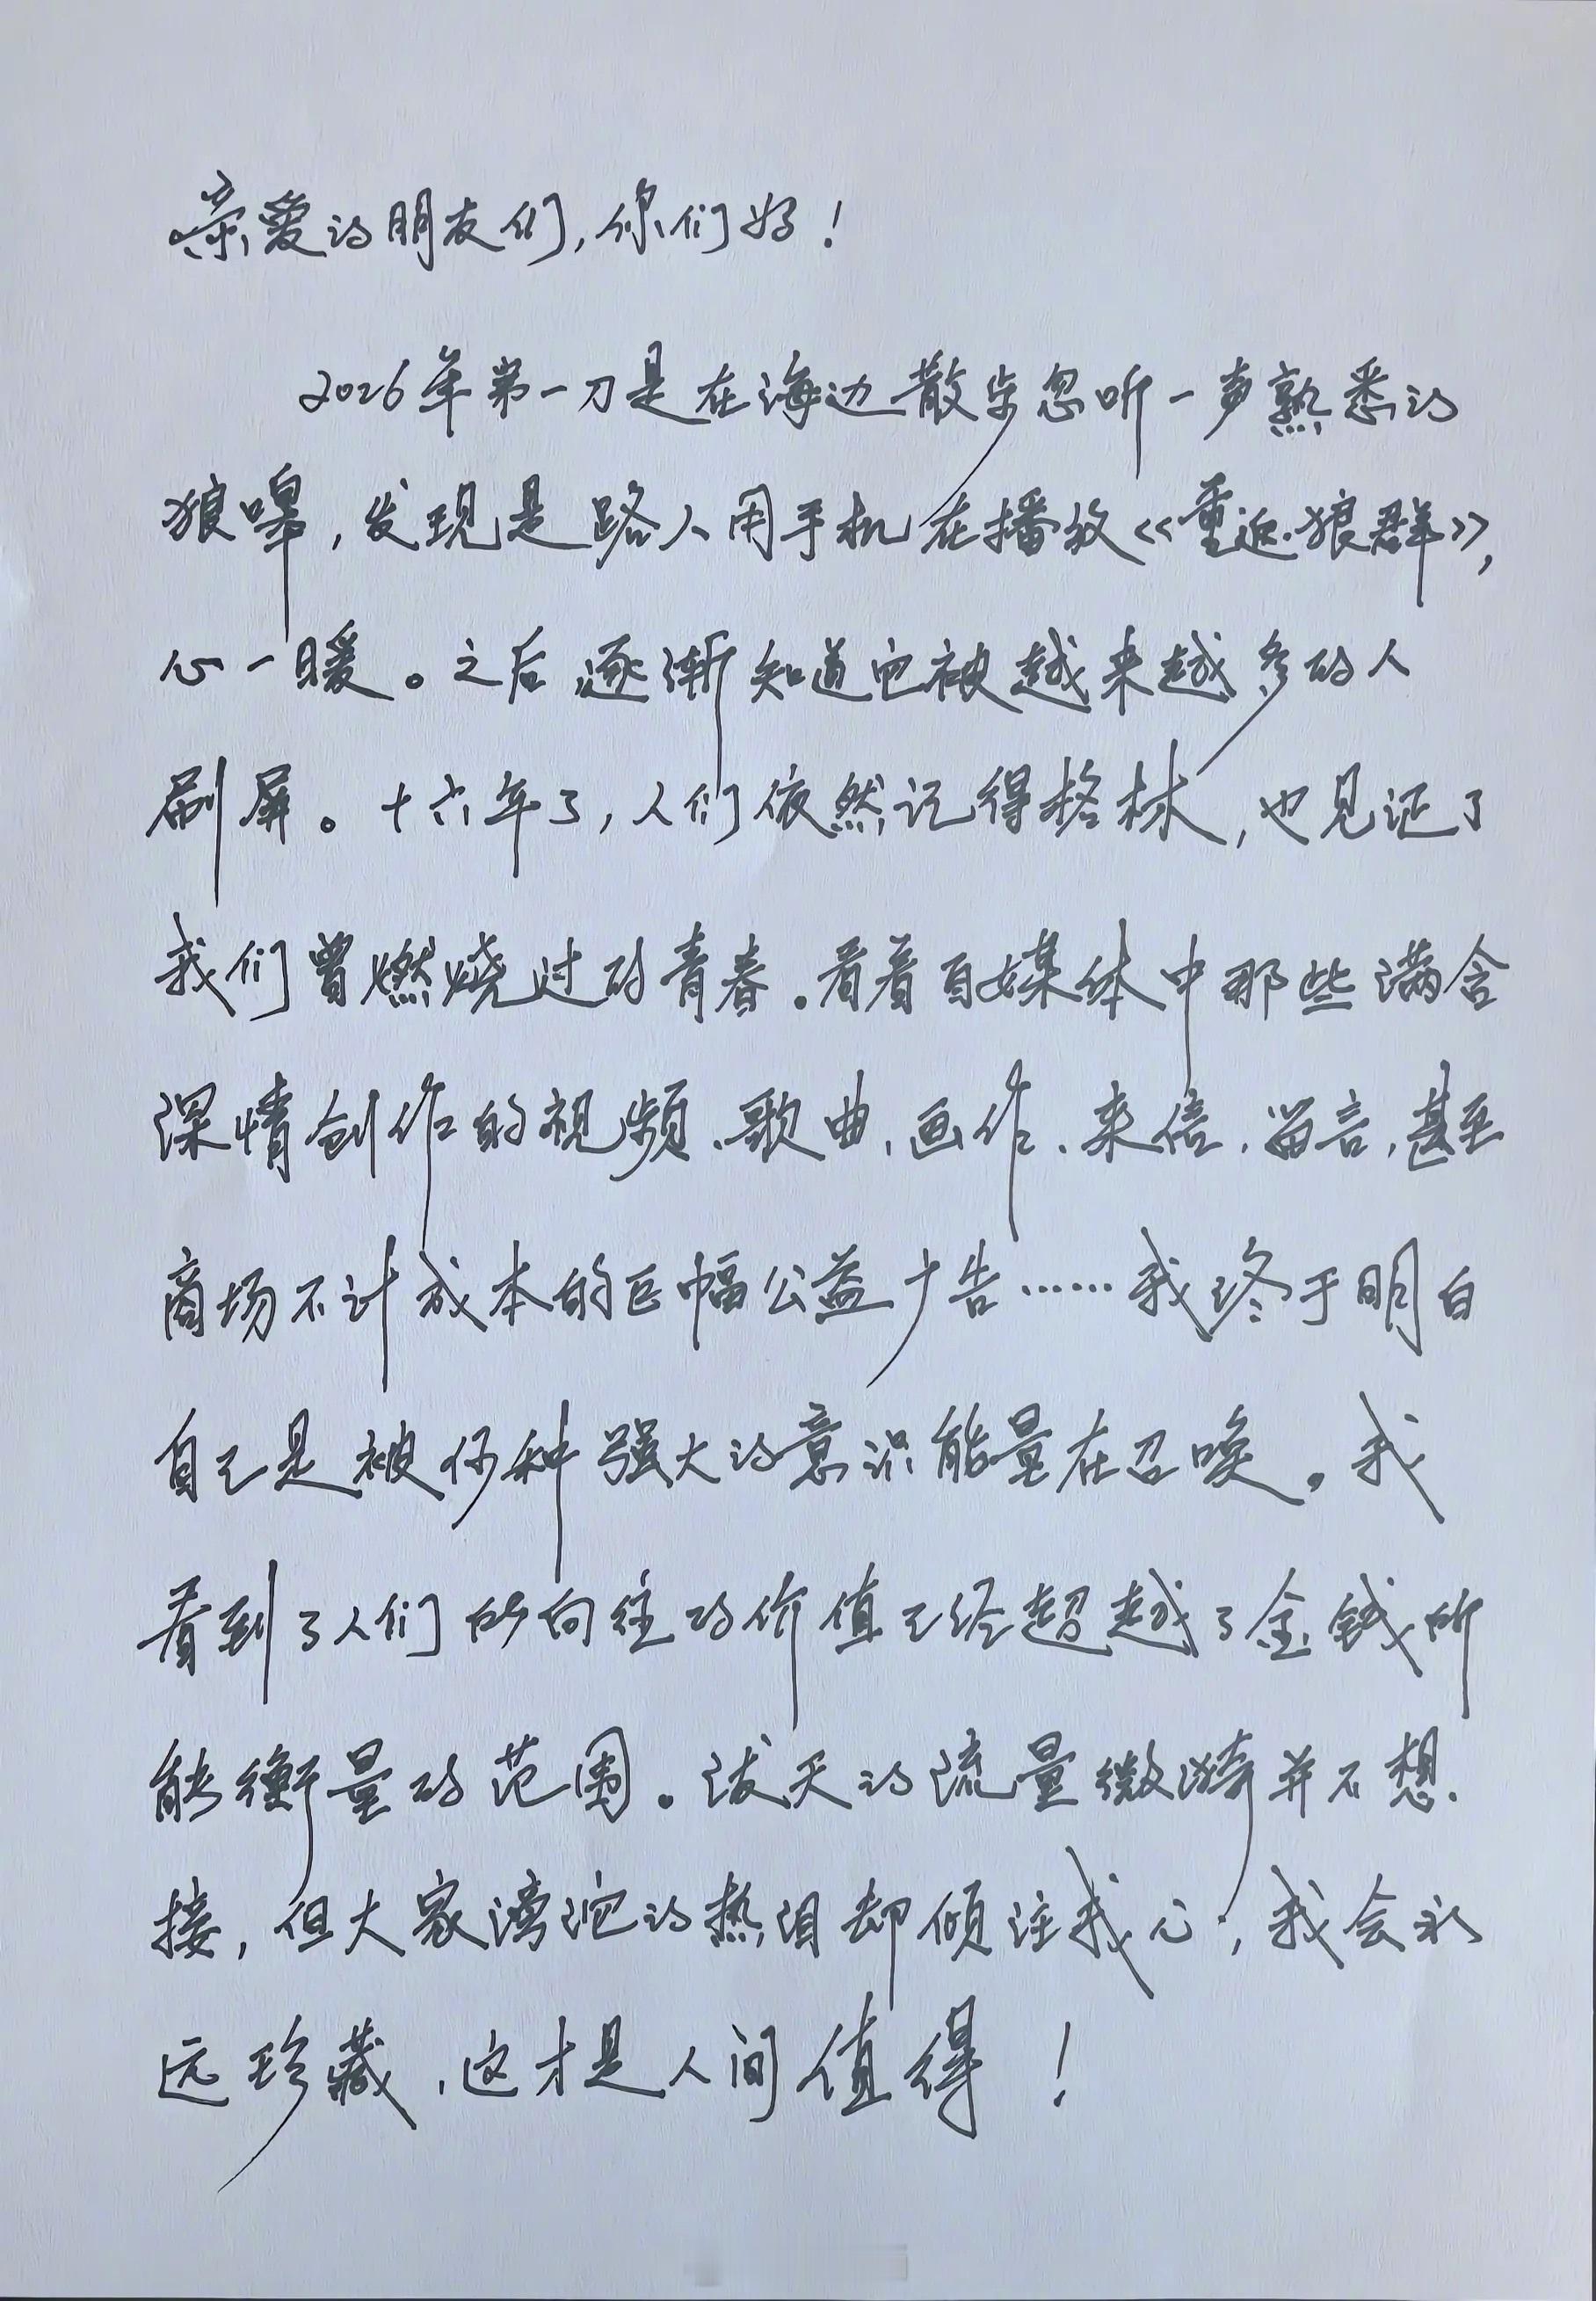 亲爱的朋友们，你们好！
2026年第一刀是在海边散步忽听一声熟悉的
狼嗥，发现是路人用手机在播放《重返·狼群》，
心一暖。之后逐渐知道它被越来越多的人
刷屏。十六年了，人们依然记得格林，也见证了
我们曾燃烧过的青春。看着自媒体中那些满含
深情创作的视频、歌曲、画作、来信、留言，甚至
商场不计成本的巨幅公益广告……我终于明白
自己是被何种强大的意识能量在召唤。我
看到了人们所向往的价值已经超越了金钱所
能衡量的范围。泼天的流量微漪并不想
接，但大家滂沱的热泪却倾注我心，我会永
远珍藏，这才是人间值得！